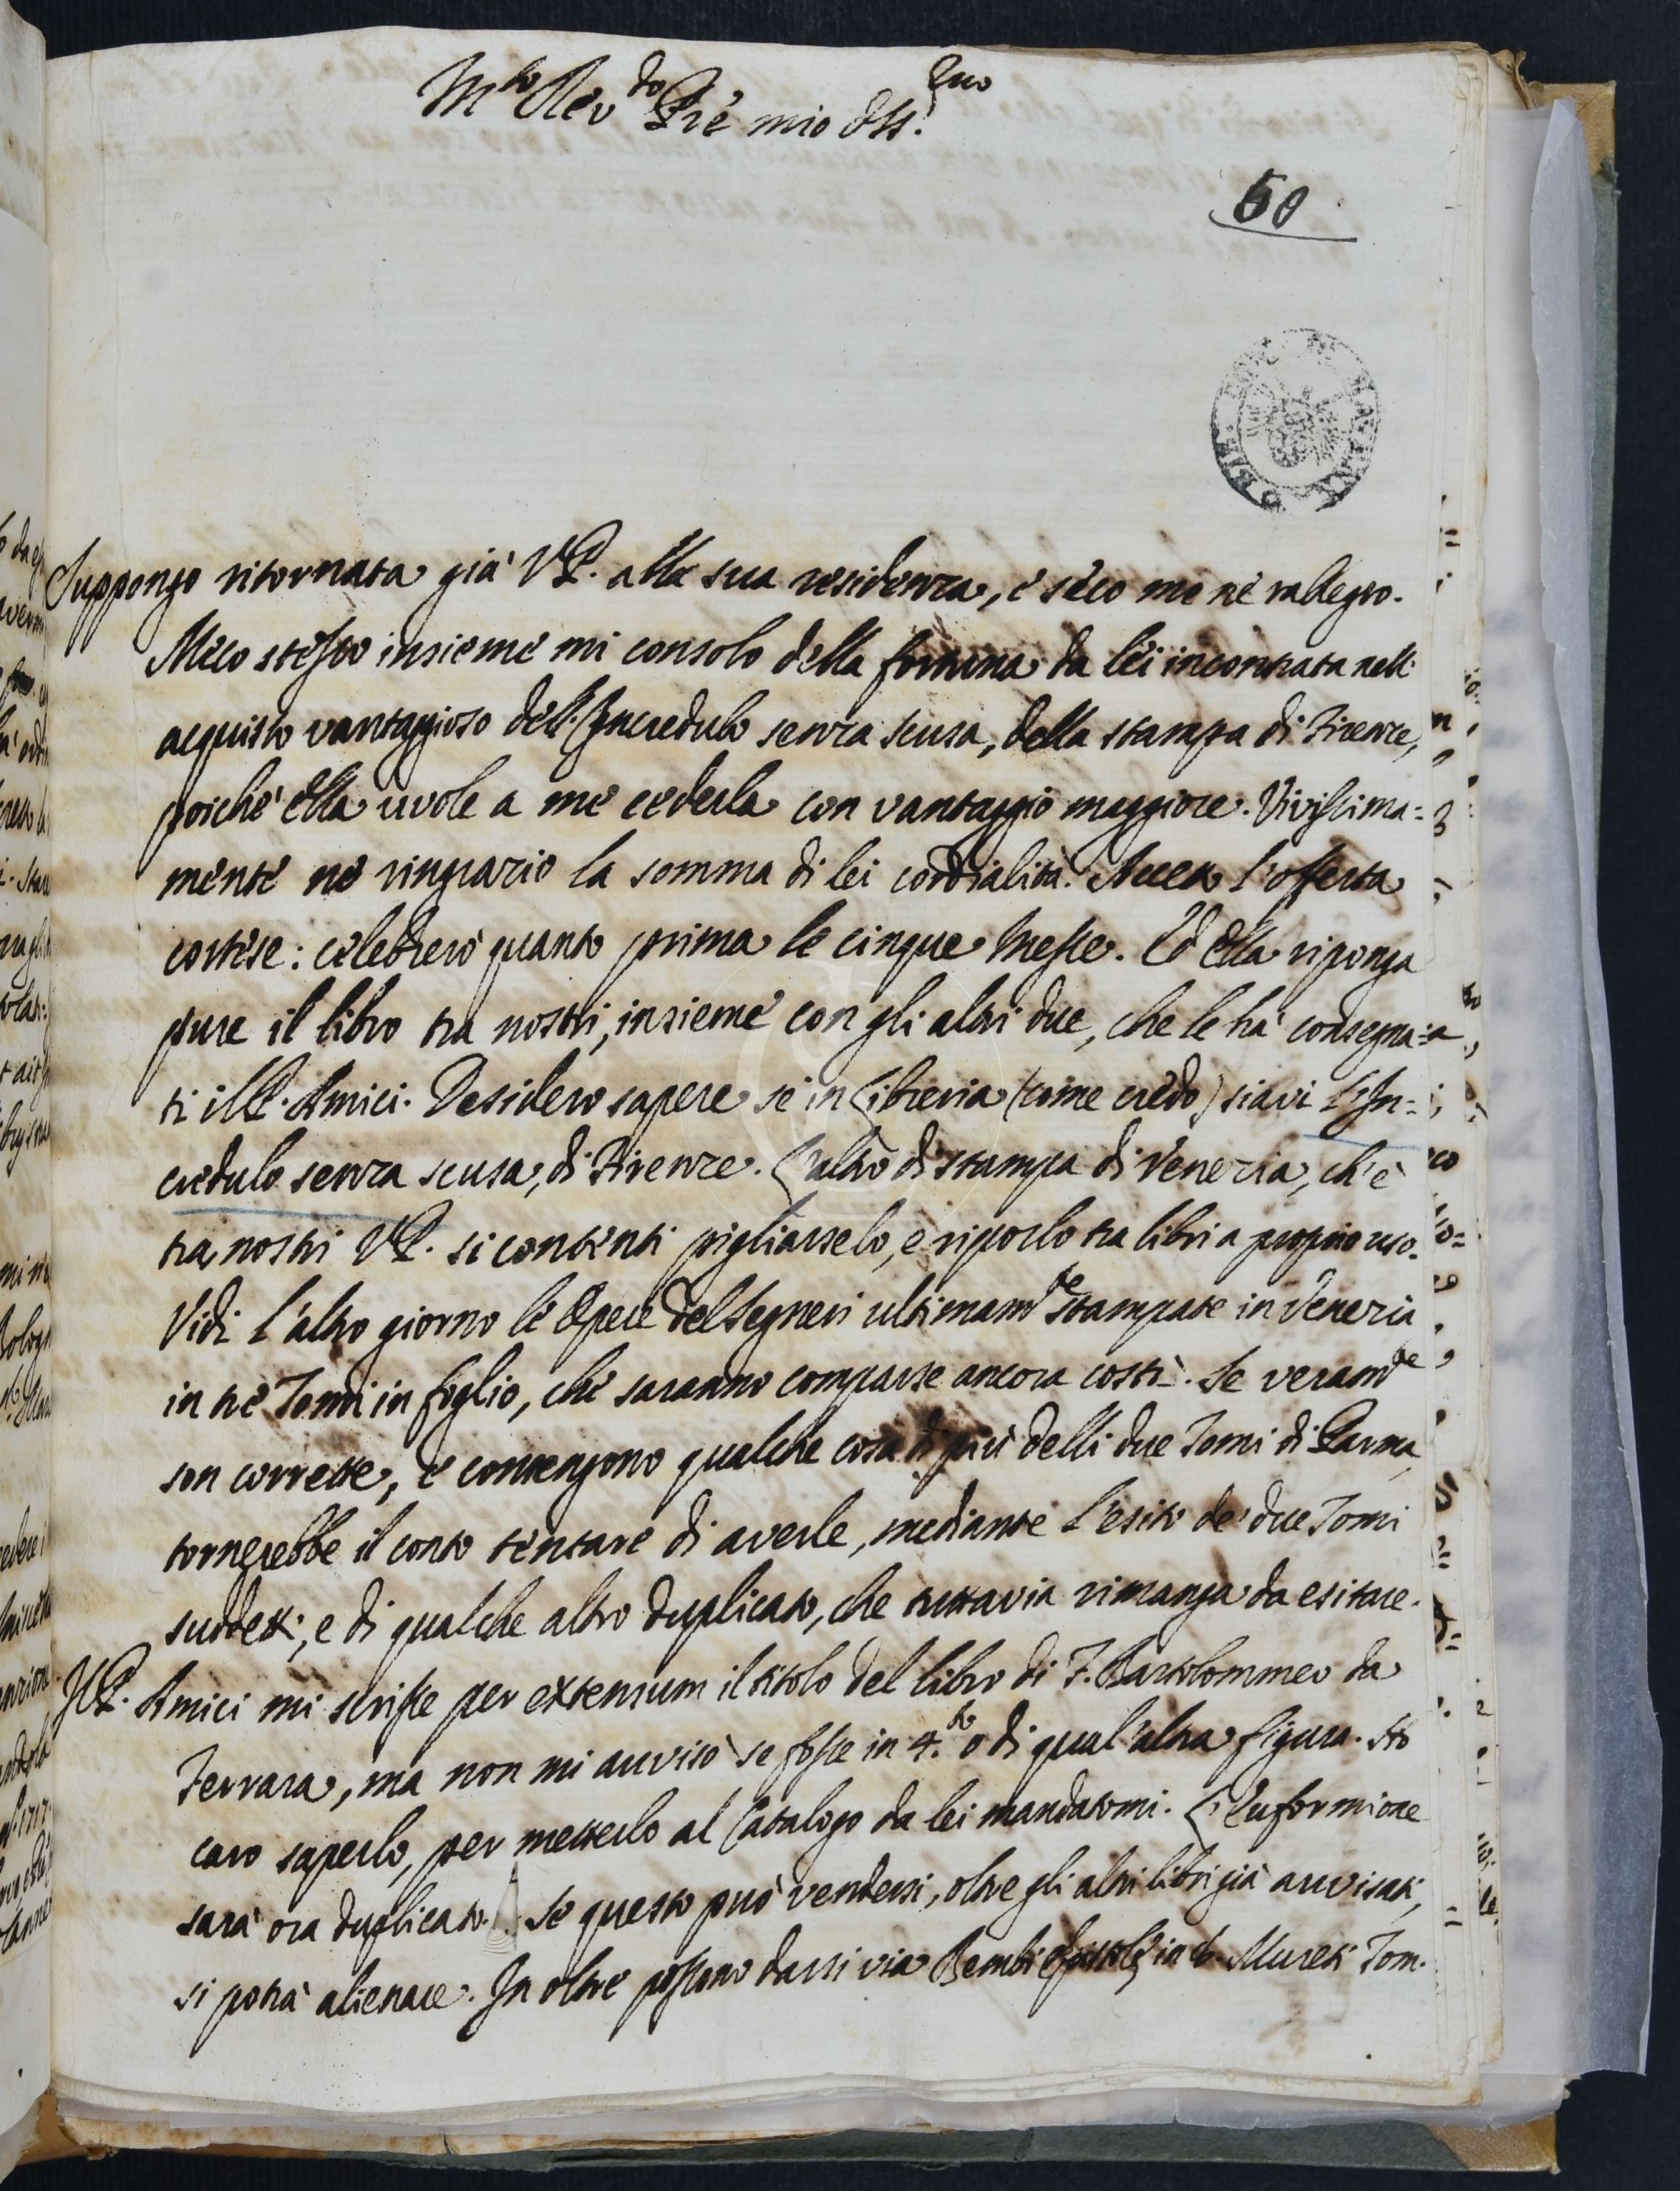 M.to Rev.do P.re mio oss.mo
60
Suppongo ritornata già V.P. alla sua residenza, e seco me ne rallegro.
Meco stesso insieme mi consolo della fortuna da lei incontrata nell'
acquisto vantaggioso dell'Incredulo senza scusa, della stampa di Firenze,
poiche ella vuole a me cederla con vantaggio maggiore. Vivissima=
mente ne ringrazio la somma di lei cordialità. Accetto l'offerta
cortese: celebrerò quanto prima le cinque Messe. Ed ella riponga
pure il libro tra nostri, insieme con gli altri due, che le ha consegna=
ti il P. Amici. Desidero sapere se in Libreria (come credo) siavi l'In=
credulo senza scusa, di Firenze. L'altro di stampa di Venezia, ch'è
tra nostri V.P. si contenti pigliarselo, e riporlo tra libri a proprio uso.
Vidi l'altro giorno le Opere del Segneri ultimam.te stampate in Venezia
in tre Tomi in foglio, che saranno comparse ancora costì. Se veram.te
son corrette, e contengono qualche cosa di più delli due Tomi di Parma,
tornerebbe il conto tentare di averle, mediante l'esito de' due Tomi
suddetti, e di qualche altro duplicato, che tuttavia rimanga da esitare.
Il P. Amici mi scrisse per extensum il titolo del libro di F. Bartolommeo da
Ferrara, ma non mi avvisò se fosse in 4.to o di qual'altra figura. Ho
caro saperlo, per metterlo al Catalogo da lei mandatomi. L'Euformione
sarà ora duplicato. Se questo può vendersi, oltre gli altri libri già avvisati,
si potrà alienare. In oltre possono darsi via Bembi Epistole in Mureti Tom.